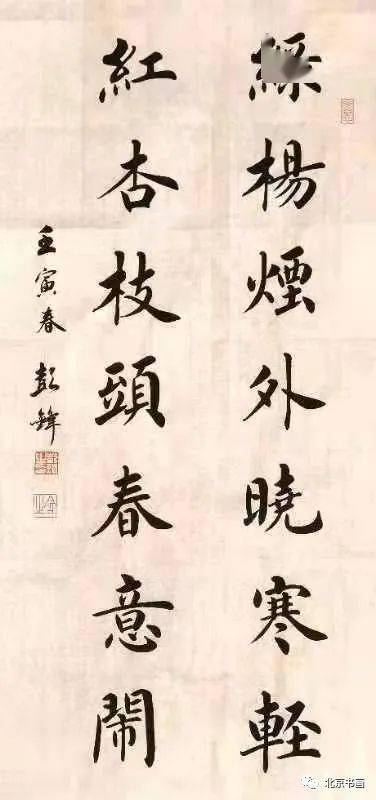 綠楊煙外曉寒輕
紅杏枝頭春意鬧
壬寅春 彭鋒
北京书画